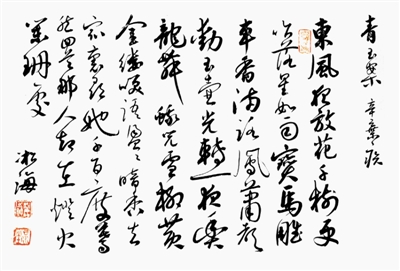 青玉案 辛棄疾
東風夜放花千樹更
吹落星如雨寶馬雕
車香滿路鳳蕭聲
動玉壺光轉一夜魚
龍舞蛾兒雪柳黃
金縷笑語盈々暗香去
眾裏尋她千百度驀
然回首那人卻在燈火
闌珊處